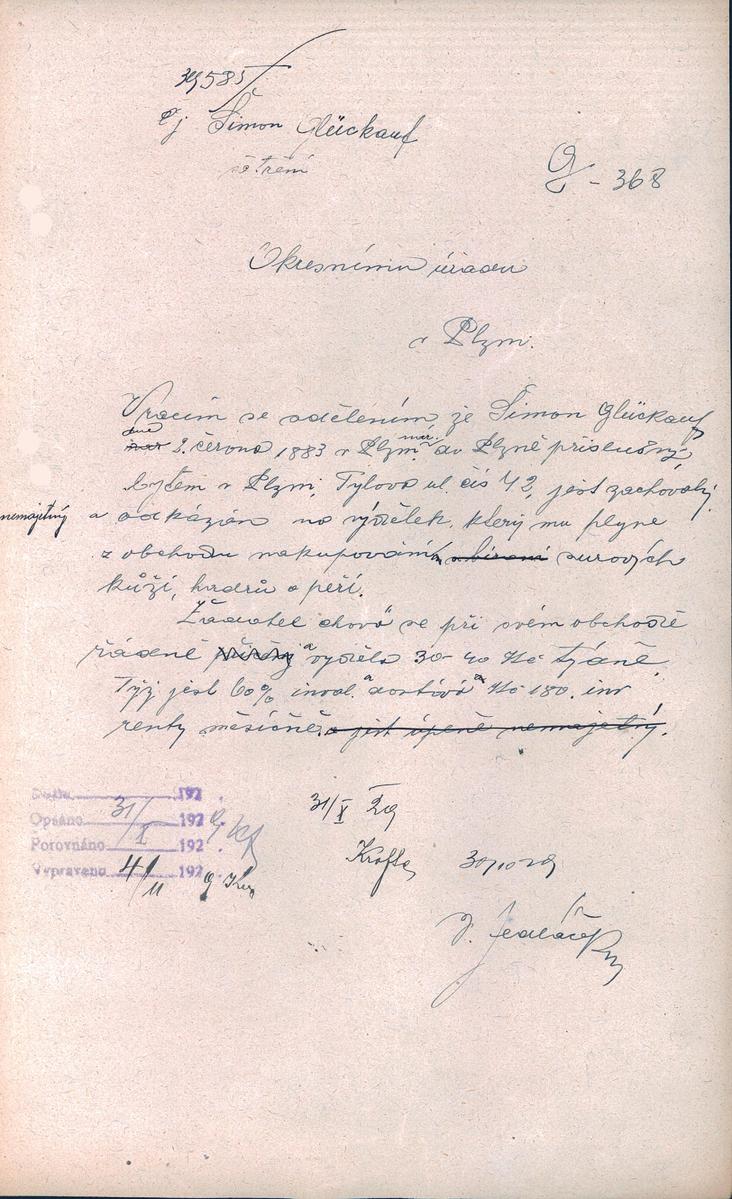 39585
Šimon Glückauf
šetření
G - 368
Okresnímu úřadu
v Plzni.
Vracím se sdělením, že Šimon Glückauf
dne
nar. 3. června 1883 v Plzni, nar. do Plzně příslušný,
bytem v Plzni, Tylova ul. čís 42, jest zachovalý,
nemajetný a odkázán na výdělek, který mu plyne
z obchodu nakupování a sbírání surových
kůží, hadrů a peří.
Žadatel chová se při svém obchodě
řádně a vydělá 30-40 Kč týdně.
Týž jest 60% inval. a dostává Kč 180. inv
renty měsíčně. a jest úplně nemajetný.
192
Opsáno 31/X 192
Porovnáno 192
Vypraveno 4/11 192
31/X 29
Krofta
30/10 29
J. Jedlička